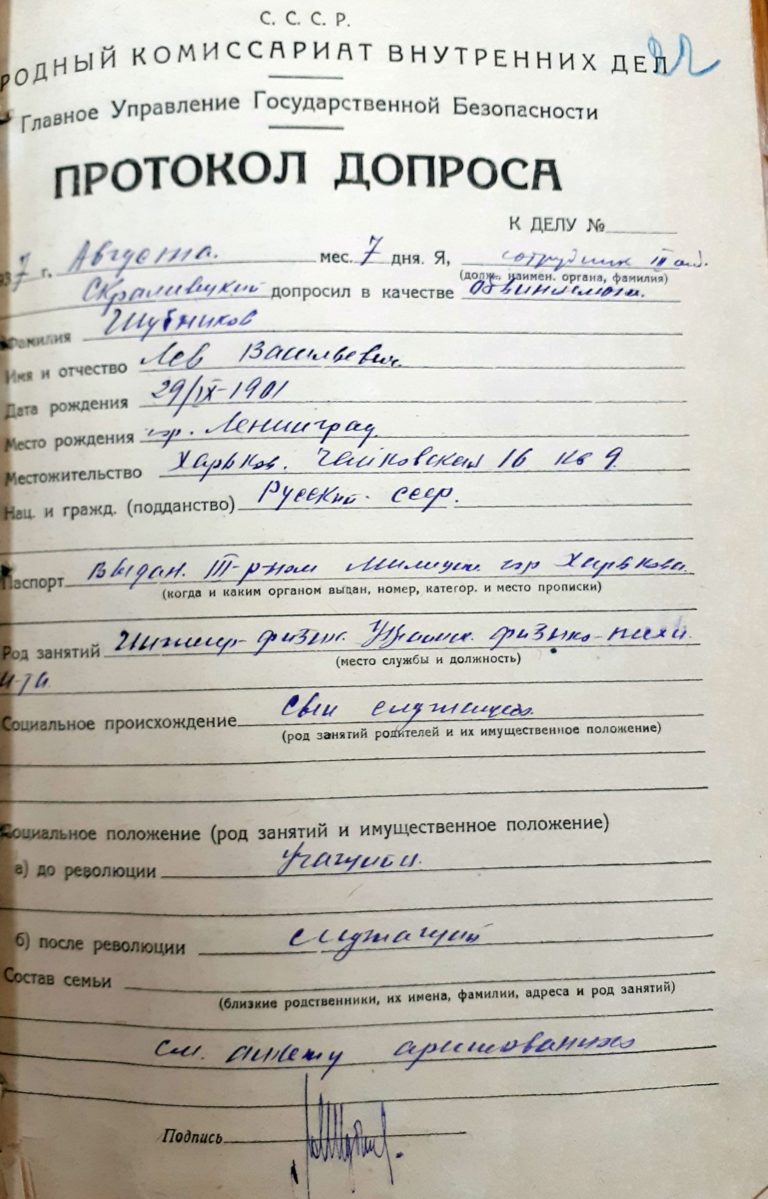 С. С. С. Р.
РОДНЫЙ КОМИССАРИАТ ВНУТРЕННИХ ДЕЛ
Главное Управление Государственной Безопасности
ПРОТОКОЛ ДОПРОСА
К ДЕЛУ №
937 г. Августа. мес. 7 дня. Я, сотрудник III отд.
(долж. наимен. органа, фамилия)
Скраливецкий допросил в качестве Обвиняемого.
Фамилия Шубников
Имя и отчество Лев Васильевич.
Дата рождения 29/IX-1901
Место рождения гор. Ленинград
Местожительство Харьков. Чайковская 16 кв 9.
Нац. и гражд. (подданство) Русский. ссср.
Паспорт Выдан. III-р-ном Милиции гор Харькова.
(когда и каким органом выдан, номер, категор. и место прописки)
Род занятий Инженер-физик. Украинск. физико-техн.
(место службы и должность)
и-та
Социальное происхождение Сын служащего.
(род занятий родителей и их имущественное положение)
Социальное положение (род занятий и имущественное положение)
а) до революции Учащийся.
б) после революции служащий
Состав семьи
(близкие родственники, их имена, фамилии, адреса и род занятий)
см. анкету арестованного
Подпись